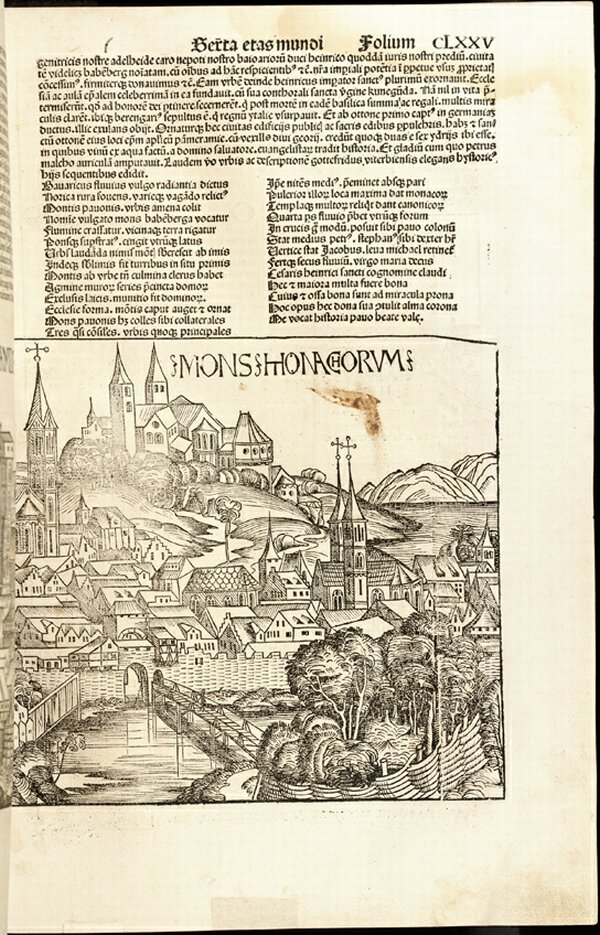 Sexta etas mundi Folium CLXXV
genitricis nostre adelheide caro nepoti nostro baioarioru duci heinrico quodda iuris nostri prediu. ciuita
te videlicz babeberg noiatam. cu oibus ad hac respicientib⁹
concessim⁹. firmiterqz donauimus Eam vrbe deinde heinricus impator sanct⁹ plurimu exornauit. Eccle
sia ac aula epalem celeberrima in ea fundauit. cu sua conthorali sancta vgine kuneguda. Na nil in vita
termiserut. qd ad honore dei ptinere secerneret. post morte in eade basilica summa ac regali. multis mira
culis claret. ibiqz berengari⁹ sepultus e. q regnu ytalie vsurpauit. Et ab ottone primo capt⁹ in germania
ductus. illic exulans obijt. Ornaturqz hec ciuitas edificijs publicis ac sacris edibus ppulchris.
ctu ottone eius loci epm apsticu credut quoqz duas e sex ydrijs ibi esse.
in quibus vinu ex aqua factu. a domino saluatore. euangelistaru tradit historia. Et gladiu cum quo petrus
malcho auricula amputauit. Laudem vo vrbis ac descriptione gottefridus viterbiensis elegans hystoric⁹
hijs sequentibus edidit.
Bauaricus fluuius vulgo radiantia dictus
Norica rura fouens. varieqz vagado relict⁹
Montis pauonis. vrbis amena colit
Nomie vulgato mons babeberga vocatur
Flumine crassatur. vicinaqz terra rigatur
Ponsqz supstrat⁹. cingit vtruqz latus
Urbs laudada nimis mot sberescit ab imis
Indeqz sblimis fit turribus in situ primis
Montis ab vrbe tn culmina clerus habet
Agmine muror series pcincta domor
Excelsus laicis. munitio fit dominor.
Ecclesie forma. motis caput auget & ornat
Mons pauonis hz colles sibi collaterales
Tres qsi cosiles. vrbis quoqz principales
Ipse nites medi⁹. peminet absqz pari
Pulcrior illor loca maxima dat monacor
Templaqz multor reliqt dant canonicor
Quarta ps fluuio pbet vtrucqz forum
In crucis modu. posuit sibi pauo colonu
Stat medius petr⁹. stephan⁹ sibi dexter
Uertice stat Jacobus. leua michael retinet
Fertqz secus fluuiu. virgo maria decus
Cesaris heinrici sancti cognomine claudi
Hec & maiora multa fuere bona
Cuius & ossa bona sunt ad miracula prona
Hoc opus hec dona sua ptulit alma corona
Me vocat historia pauo beate vale.
MONS MONACHORVM